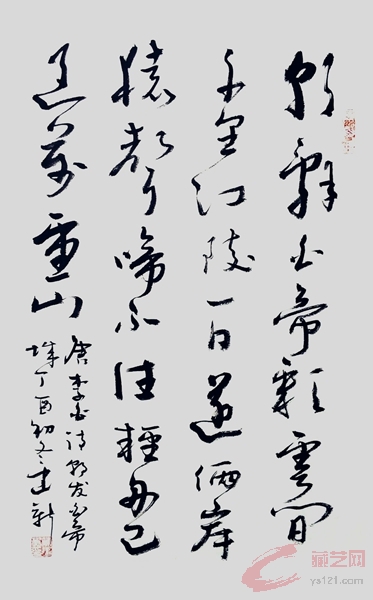 朝辞白帝彩雲間
千里江陵一日還倆岸
猿聲啼不住輕舟已
過萬重山
唐李白诗朝发白帝
城丁酉初冬建新
藏艺网
ys121.com